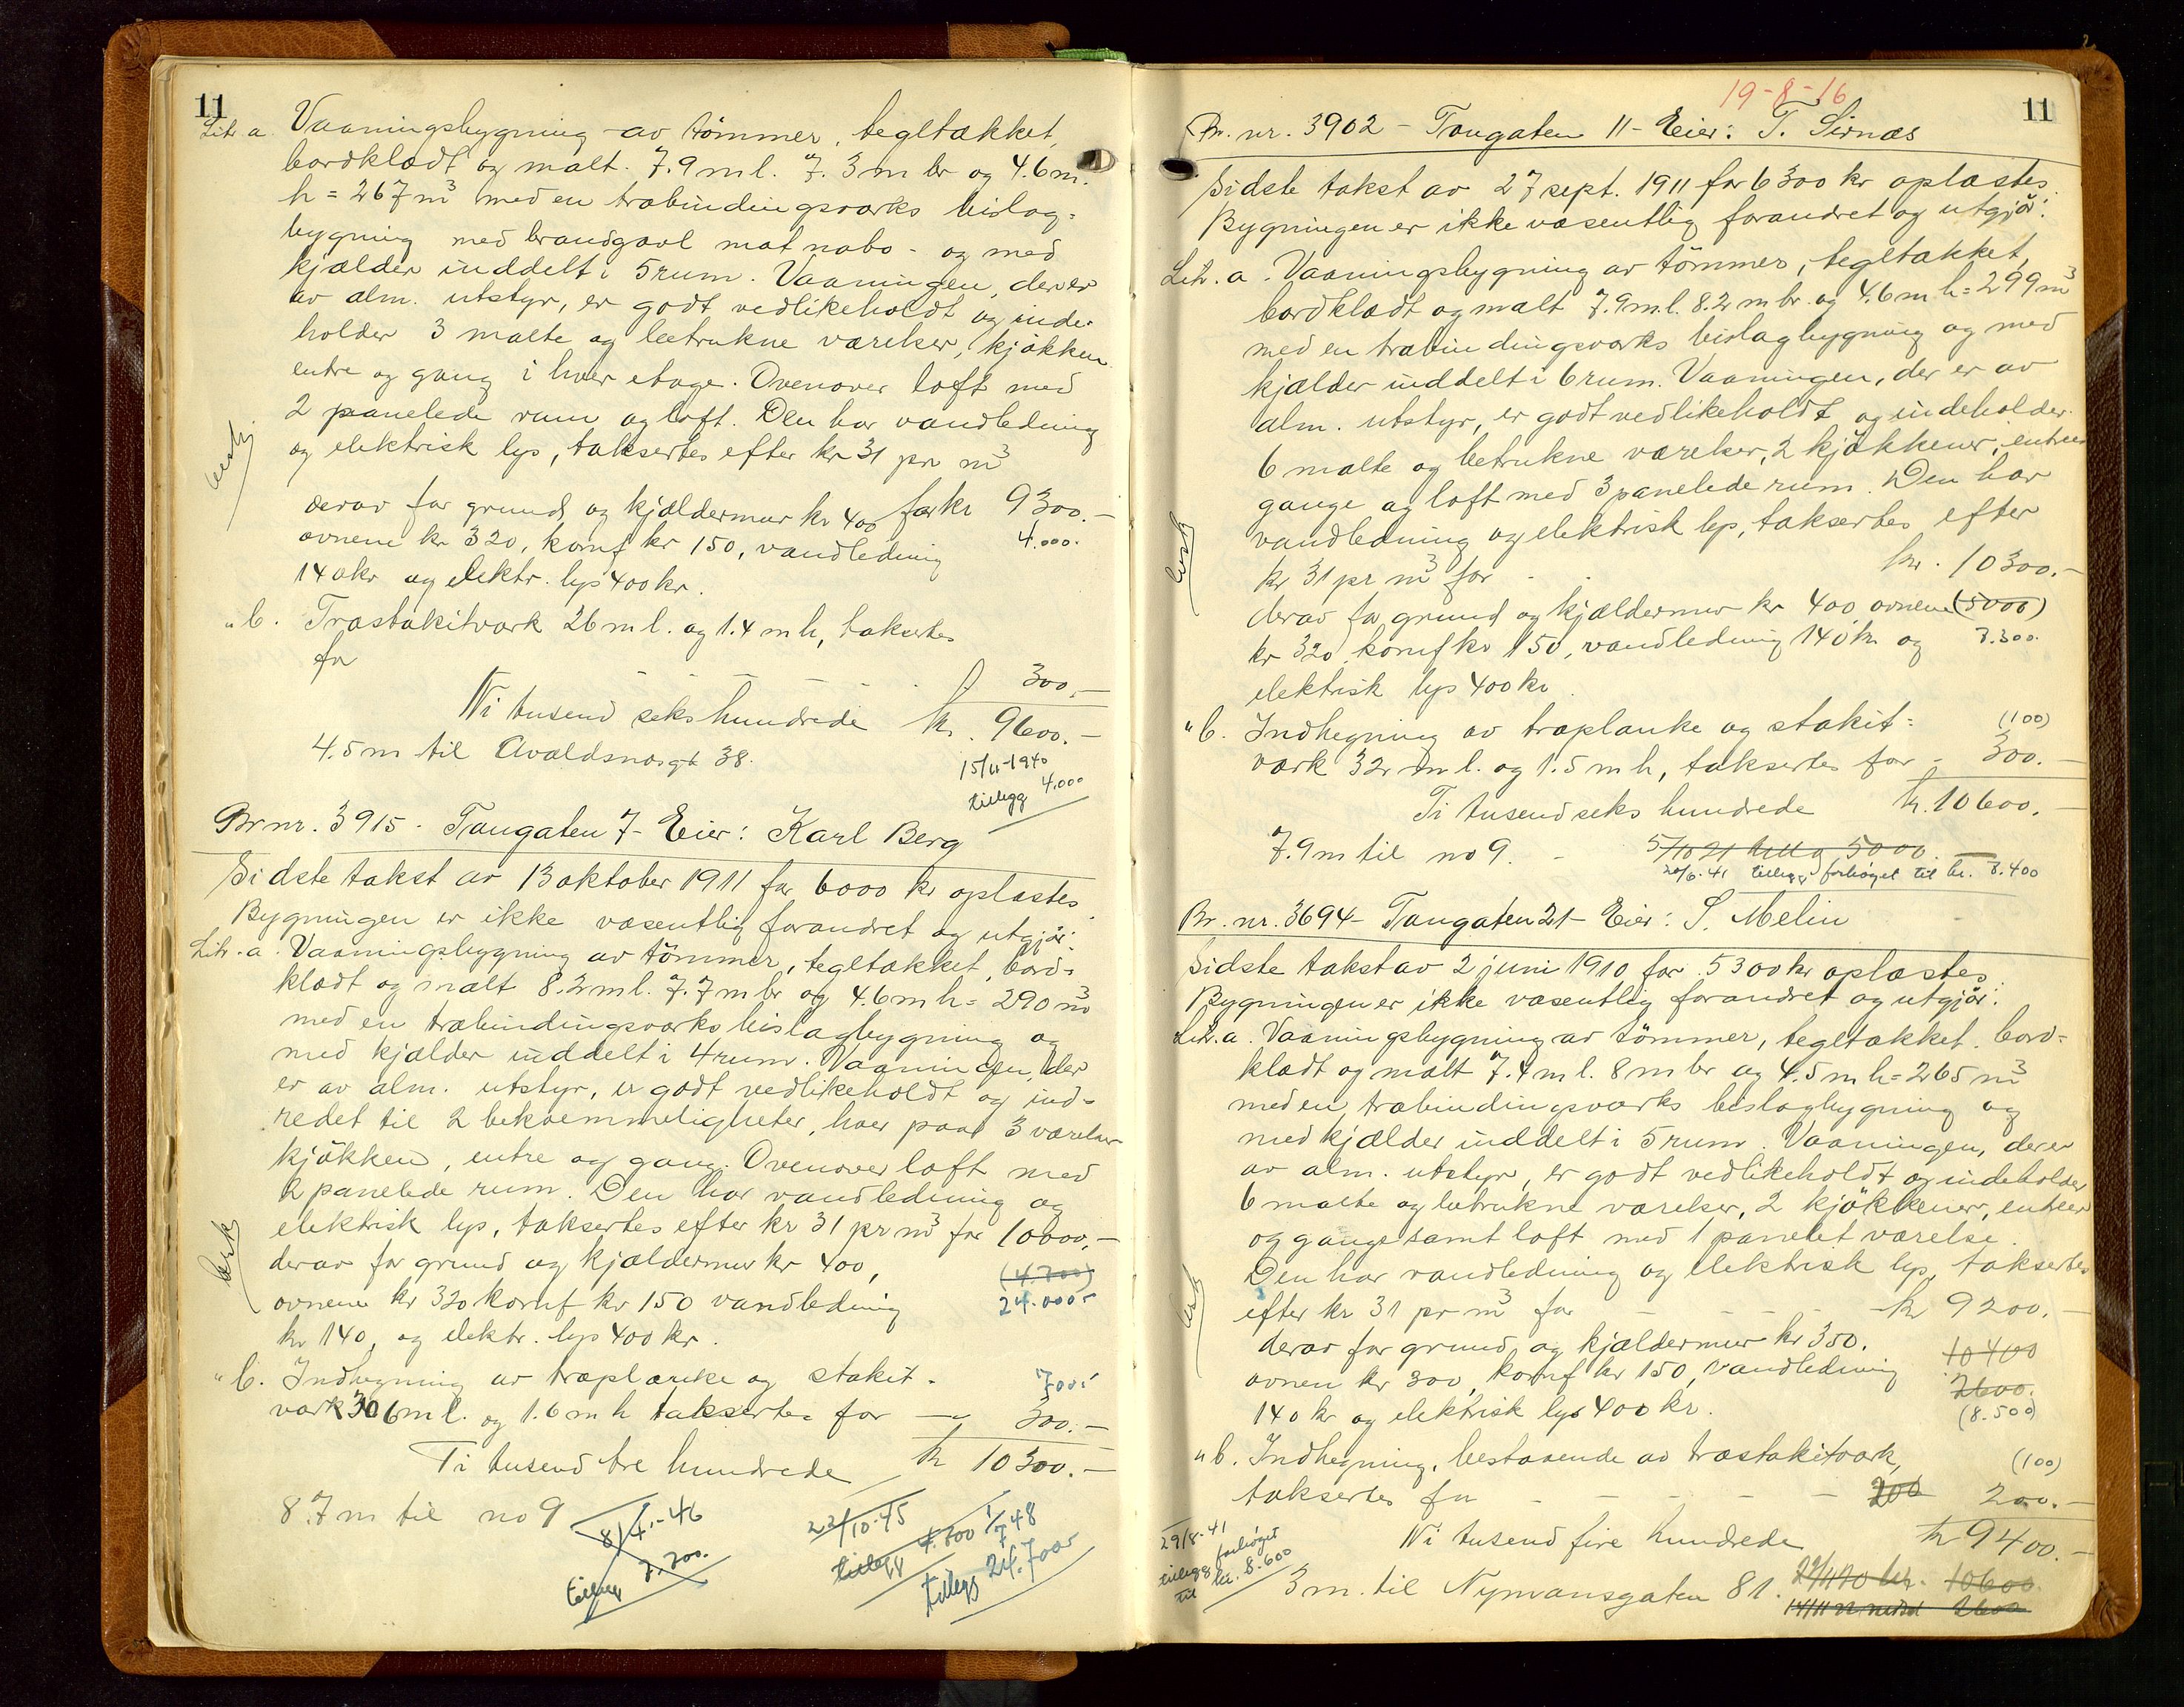 11
Litr a. Vaaningsbygning av tömmer, tegltækket,
bordklædt og malt. 7.9 m l. 7.3 m br og 4.6 m.
h = 267 m³ med en træbindingsværks bislag-
bygning med brandgavl mot nabo - og med
kjælder inddelt i 5 rum. Vaaningen, der er
av alm. utstyr, er godt vedlikeholdt og inde-
holder 3 malte og betrukne værelser, kjøkken
entre og gang i hver etage. Ovenover loft med
2 panelede rum og loft. Den har vandledning
og elektrisk lys, taksertes efter kr 31 pr m³
derav for grund og kjældermur kr 400 for kr 9300.-
ovnene kr 320, komf kr 150, vandledning 4.000.
140 kr og elektr. lys 400 kr.
" b. Træstakitværk 26 m l. og 1.4 m h, taksertes
for 300.-
Ni tusend seks hundrede kr. 9600.-
4.5 m til Avaldsnesgt 38.
15/11-1940
tillegg 4.000
Br nr. 3915 - Tangaten 7 - Eier: Karl Berg
Sidste takst av 13 oktober 1911 for 6000 kr oplæstes.
Bygningen er ikke væsentlig forandret og utgjör:
Litr. a. Vaaningsbygning av tömmer, tegltækket, bord-
klædt og malt 8.2 m l. 7.7 m br og 4.6 m h = 290 m³
med en træbindingsværks bislagbygning og
med kjælder inddelt i 4 rum. Vaaningen, der
er av alm. utstyr, er godt vedlikeholdt og ind-
redet til 2 bekvemmeligheter, hver paa 3 værelser
kjökken, entre og gang. Ovenover loft med
2 panelede rum. Den har vandledning og
elektrisk lys, taksertes efter kr 31 pr m³ for 10000.-
derav for grund og kjældermur kr 400, (4.200)
ovnene kr 320 komf kr 150 vandledning 24.000-
kr 140, og elektr. lys 400 kr.
" b. Indhegning av træplanke og stakit- 700.-
værk 36 m l. og 1.6 m h taksertes for - " 300.-
Ti tusend tre hundrede kr 10300.-
8.7 m til no 9
8/4-46
tillegg
23/10-45
tillegg 4.300
1/7 48
tillegg 24.700
19-8-16
11
Br. nr. 3902 - Tangaten 11 - Eier: T. Sirnæs
Sidste takst av 27 sept. 1911 for 6300 kr oplæstes.
Bygningen er ikke væsentlig forandret og utgjör:
Litr. a. Vaaningsbygning av tömmer, tegltækket,
bordklædt og malt 7.9 m l. 8.2 m br og 4.6 m h = 299 m³
med en træbindingsværks bislagbygning og med
kjælder inddelt i 6 rum. Vaaningen, der er av
alm. utstyr, er godt vedlikeholdt og indeholder
6 malte og betrukne værelser, 2 kjökkener, entreer
gange og loft med 3 panelede rum. Den har
vandledning og elektrisk lys, taksertes efter
kr 31 pr m³ for kr. 10300.-
derav for grund og kjældermur kr 400, ovnene (5000)
kr 320, komf kr 150, vandledning 140 kr og 8.300.
elektrisk lys 400 kr.
" b. Indhegning av træplanke og stakit- (100)
værk 32 m l. og 1.5 m h, taksertes for - 300.-
Ti tusend seks hundrede kr. 10600.-
7.9 m til no 9. - 5/10 21 tillæg 5000.
20/6-41 tillegg forhöget til kr. 8.400
Br. nr. 3694 - Tangaten 21 - Eier: S. Melin
Sidste takst av 2 juni 1910 for 5300 kr oplæstes.
Bygningen er ikke væsentlig forandret og utgjör:
Litr. a. Vaaningsbygning av tömmer, tegltækket, bord-
klædt og malt 7.4 m l. 8 m br og 4.5 m h = 265 m³
med en træbindingsværks bislagbygning og
med kjælder inddelt i 5 rum. Vaaningen, der er
av alm. utstyr, er godt vedlikeholdt og indeholder
6 malte og betrukne værelser, 2 kjökkener, entreer
og gange samt loft med 1 panelet værelse.
Den har vandledning og elektrisk lys, taksertes
efter kr 31 pr m³ for - - - - kr 9200.-
derav for grund og kjældermur kr 350. 10400
ovnen kr 300, komf kr 150, vandledning 2600.
140 kr og elektrisk lys 400 kr. (8.500)
" b. Indhegning, bestaaende av træstakitværk, (100)
taksertes for - - - - - 200 200.-
Ni tusend fire hundrede kr 9400.-
29/8-41
tillegg forhöget
til kr. 8.600
3 m. til Nymansgaten 81.
10600
2600